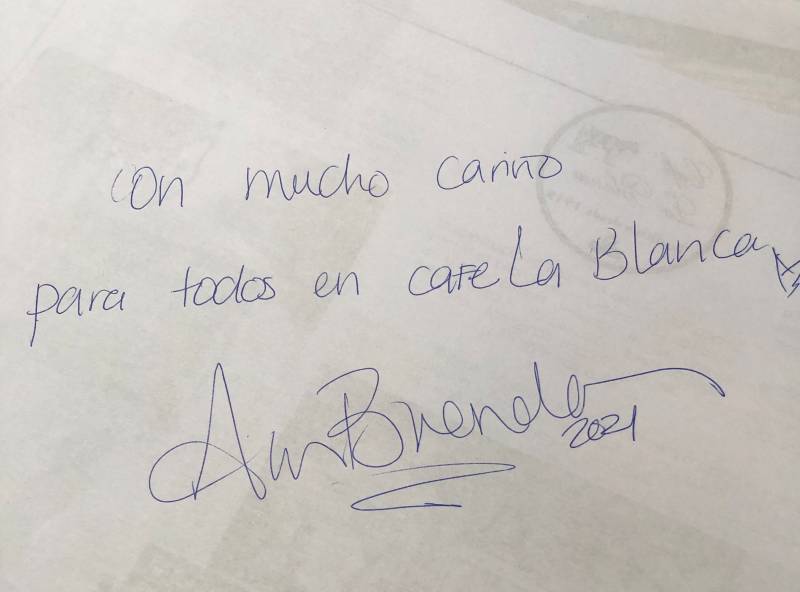 con mucho cariño
para todos en cafe La Blanca
Ana Brenda
2021